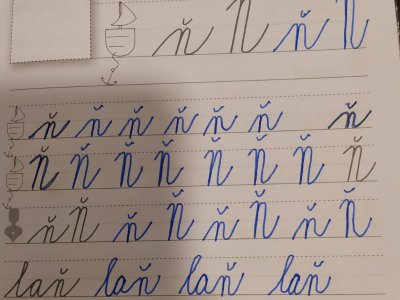 ň Ň ň Ň
ň ň ň ň ň ň ň
Ň Ň Ň Ň Ň Ň Ň Ň
ň Ň ň Ň ň Ň ň Ň
laň laň laň laň